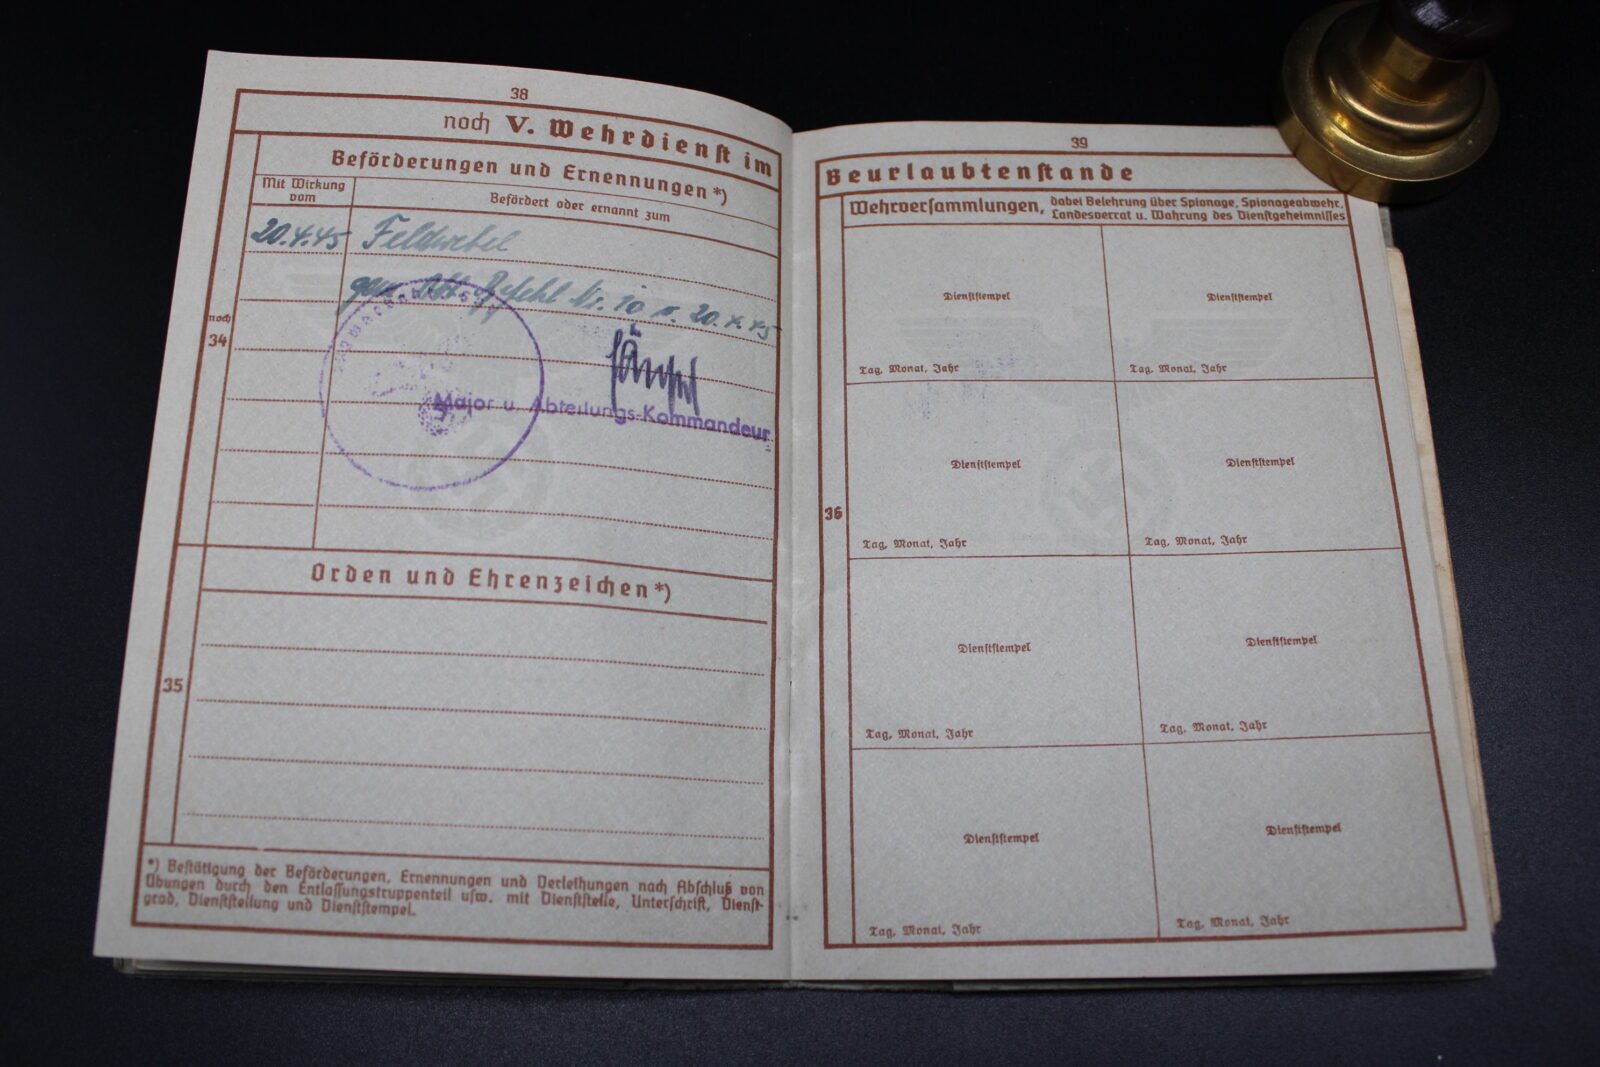 38
noch V. Wehrdienst im
Beförderungen und Ernennungen *)
Mit Wirkung vom
Befördert oder ernannt zum
20.4.45 Feldwebel
gem. Abt. Befehl Nr. 10 v. 20.4.45
noch
34
Major u. Abteilungs-Kommandeur
Orden und Ehrenzeichen *)
35
*) Bestätigung der Beförderungen, Ernennungen und Verleihungen nach Abschluß von
Übungen durch den Entlassungstruppenteil usw. mit Dienststelle, Unterschrift, Dienst-
grad, Dienststellung und Dienststempel.
39
Beurlaubtenstande
Wehrversammlungen, dabei Belehrung über Spionage, Spionageabwehr,
Landesverrat u. Wahrung des Dienstgeheimnisses
36
Dienststempel
Dienststempel
Tag, Monat, Jahr
Tag, Monat, Jahr
Dienststempel
Dienststempel
Tag, Monat, Jahr
Tag, Monat, Jahr
Dienststempel
Dienststempel
Tag, Monat, Jahr
Tag, Monat, Jahr
Dienststempel
Dienststempel
Tag, Monat, Jahr
Tag, Monat, Jahr